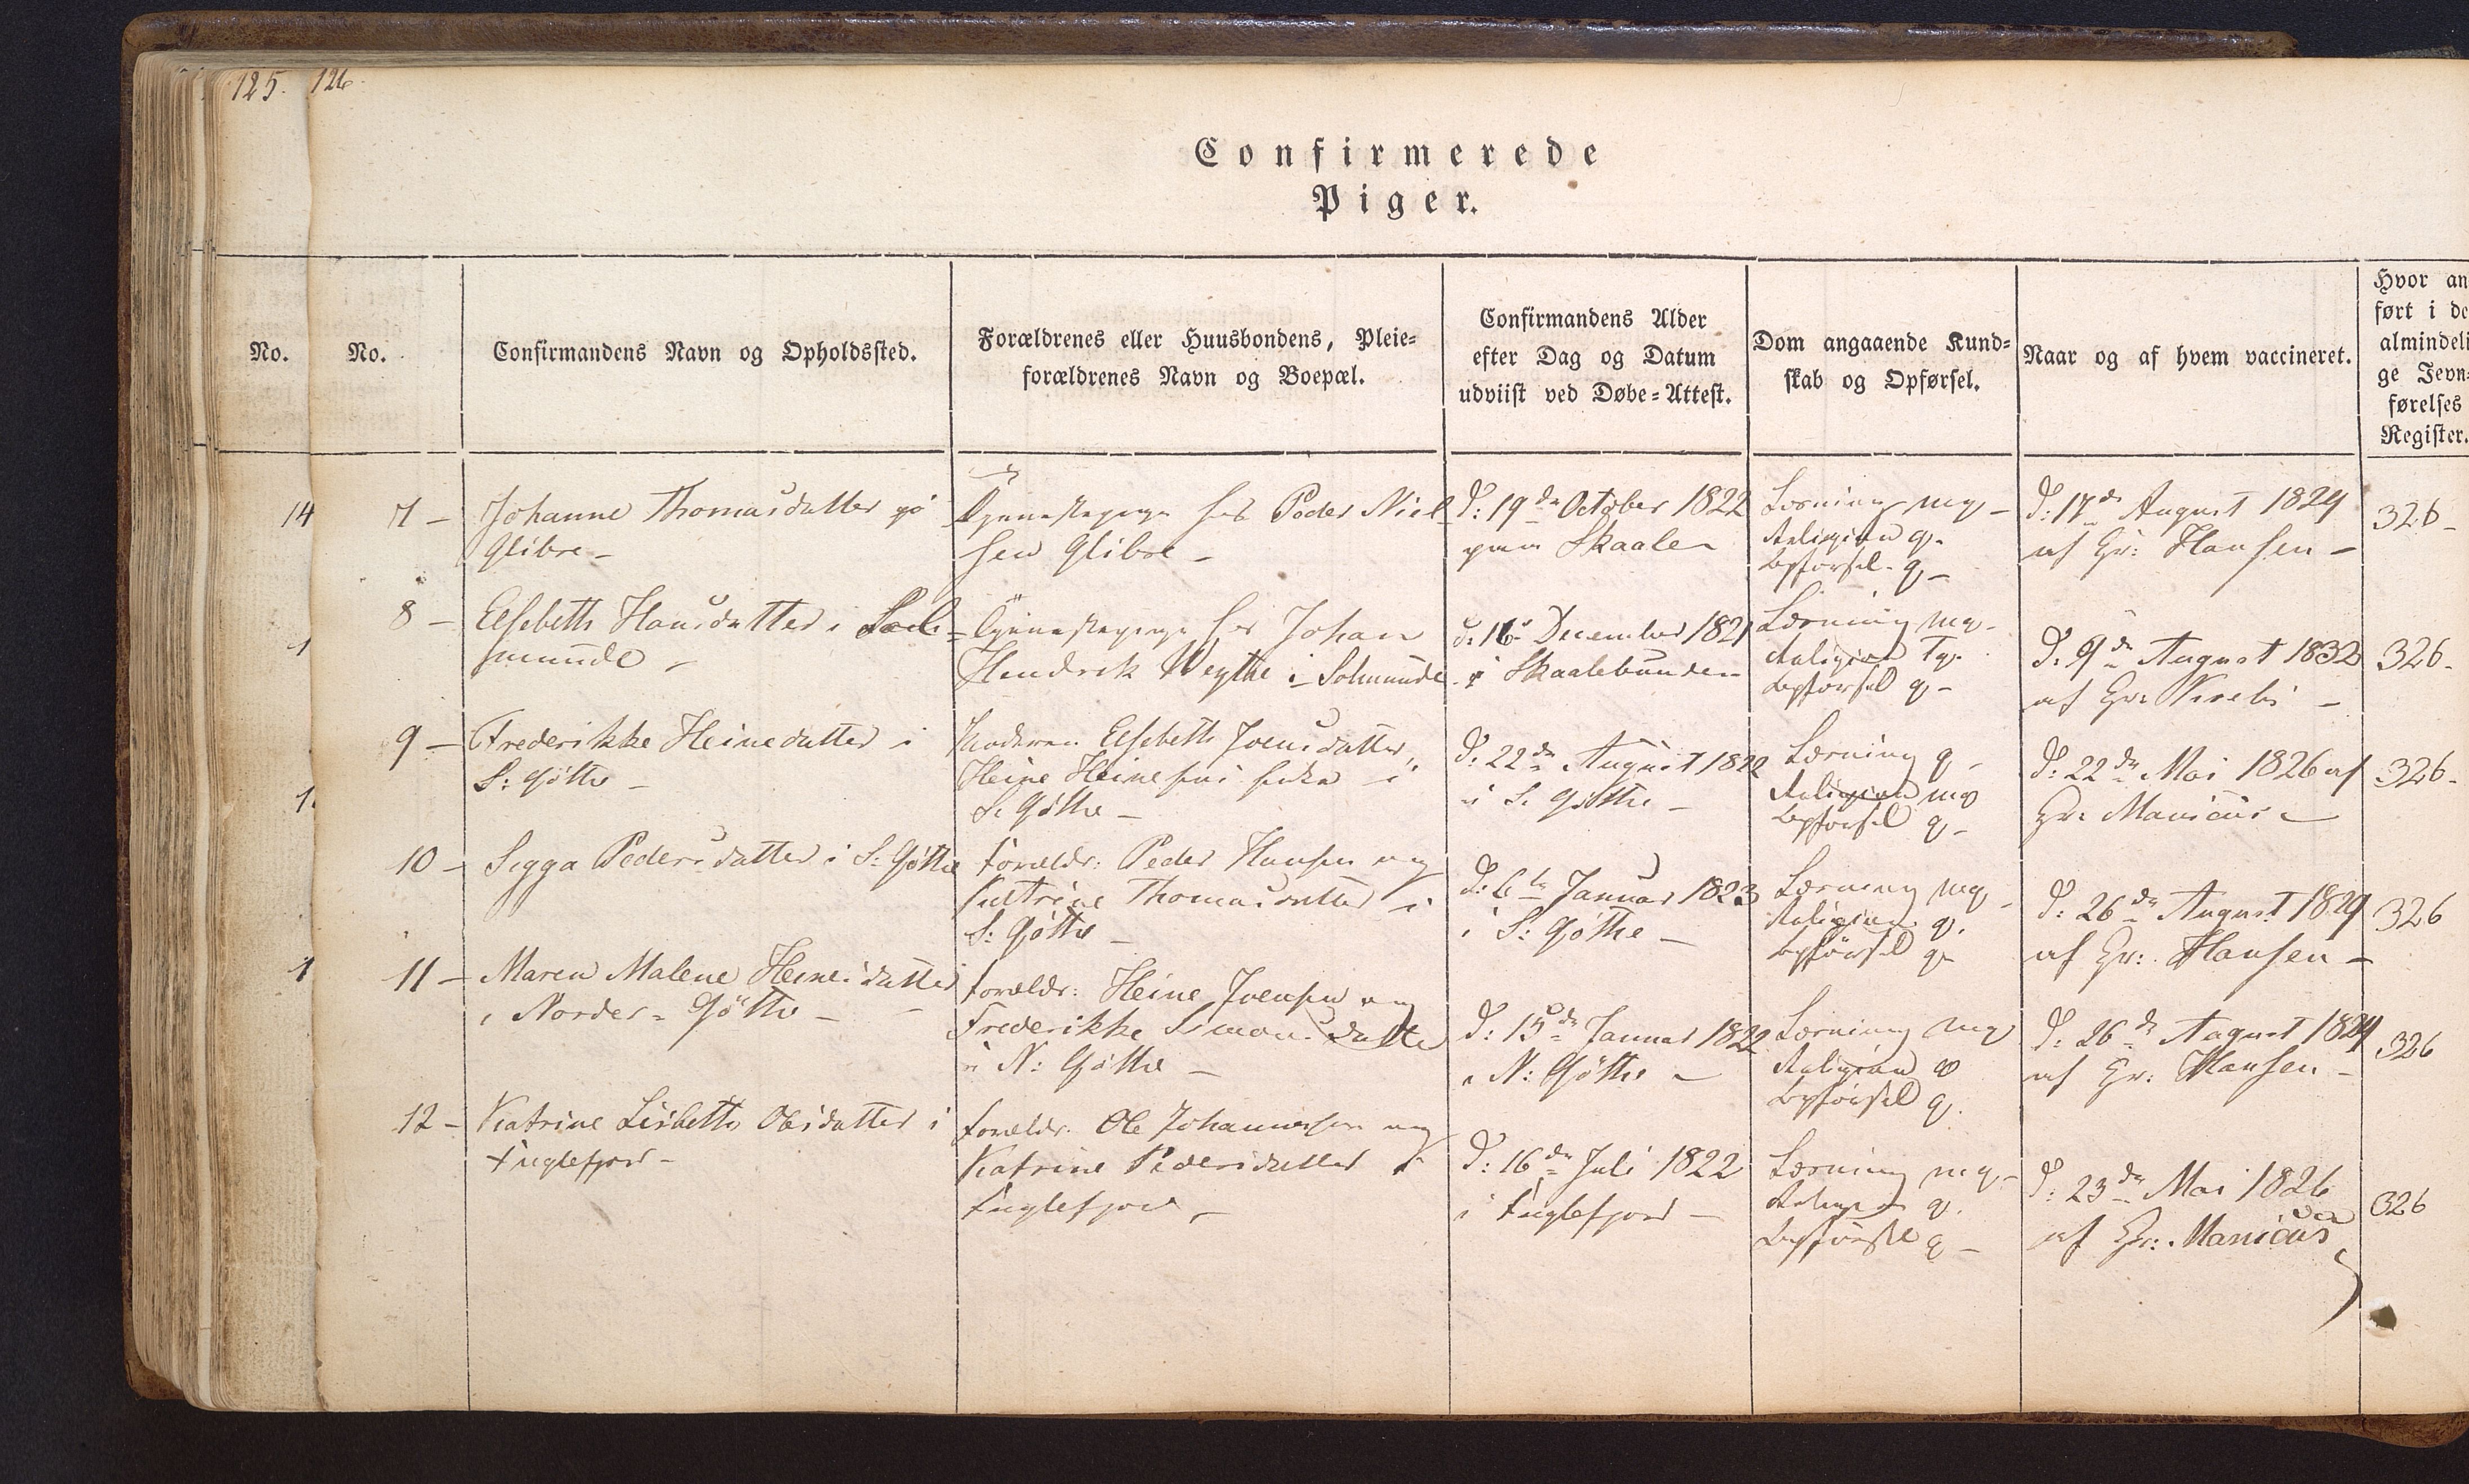 125. 126.
Confirmerede
Piger.
No.
No.
Confirmandens Navn og Opholdssted.
Forældrenes eller Huusbondens, Pleie=
forældrenes Navn og Boepæl.
Confirmandens Alder
efter Dag og Datum
udviist ved Døbe=Attest.
Dom angaaende Kund=
skab og Opførsel.
Naar og af hvem vaccineret.
Hvor an
ført i de
almindeli
ge Jevn=
førelses
Register.
14
7 –
Johanne Thomasdatter på
Glibre –
Tjenestepige hos Peder Niel
sen Glibre –
D: 19de October 1822
paa Skaale –
Læsning mg –
Religion g.
Opførsel g –
D: 17de August 1829
af Hr: Hansen –
326 –
1
8 –
Elsebeth Hansdatter i Sol=
munde –
Tjenestepige hos Johan
Hendrik Weyhe i Solmunde
d: 16de December 1821
i Skaalebunden
Læsning mg –
Religion Tg.
Opførsel g –
D: 9de August 1832
af Hr:
326 –
1
9 –
Frederikke Heinedatter i
S: Gøthe –
Moderen Elsebeth Joensdatter,
Heine Heinesens Enke i
S. Gøthe –
D: 22de August 1822
i S. Gøthe –
Læsning g –
Religion mg
Opførsel g –
D: 22de Mai 1826 af
Hr: Manicus –
326 –
10 –
Sigga Pedersdatter i S: Gøthe
Forældr: Peder Hansen og
Katrine Thomasdatter i
S: Gøthe –
D: 6te Januar 1823
i S: Gøthe –
Læsning mg –
Religion g.
Opførsel g –
D: 26de August 1829
af Hr: Hansen –
326
1
11 –
Maren Malene Heinesdatter
i Norder=Gøthe –
Forældr: Heine Joensen og
Frederikke Simonsdatter
i N: Gøthe –
D: 15de Januar 1822
i N: Gøthe –
Læsning mg
Religion g
Opførsel g.
D: 26de August 1829
af Hr: Hansen –
326
12 –
Katrine Lisbeth Olesdatter i
Fuglefjord –
Forældr. Ole Johannesen og
Katrine Pedersdatter i
Fuglefjord –
D: 16de Juli 1822
i Fuglefjord –
Læsning mg –
Religion g.
Opførsel g –
D: 23de Mai 1826
af Hr: Manicus
326